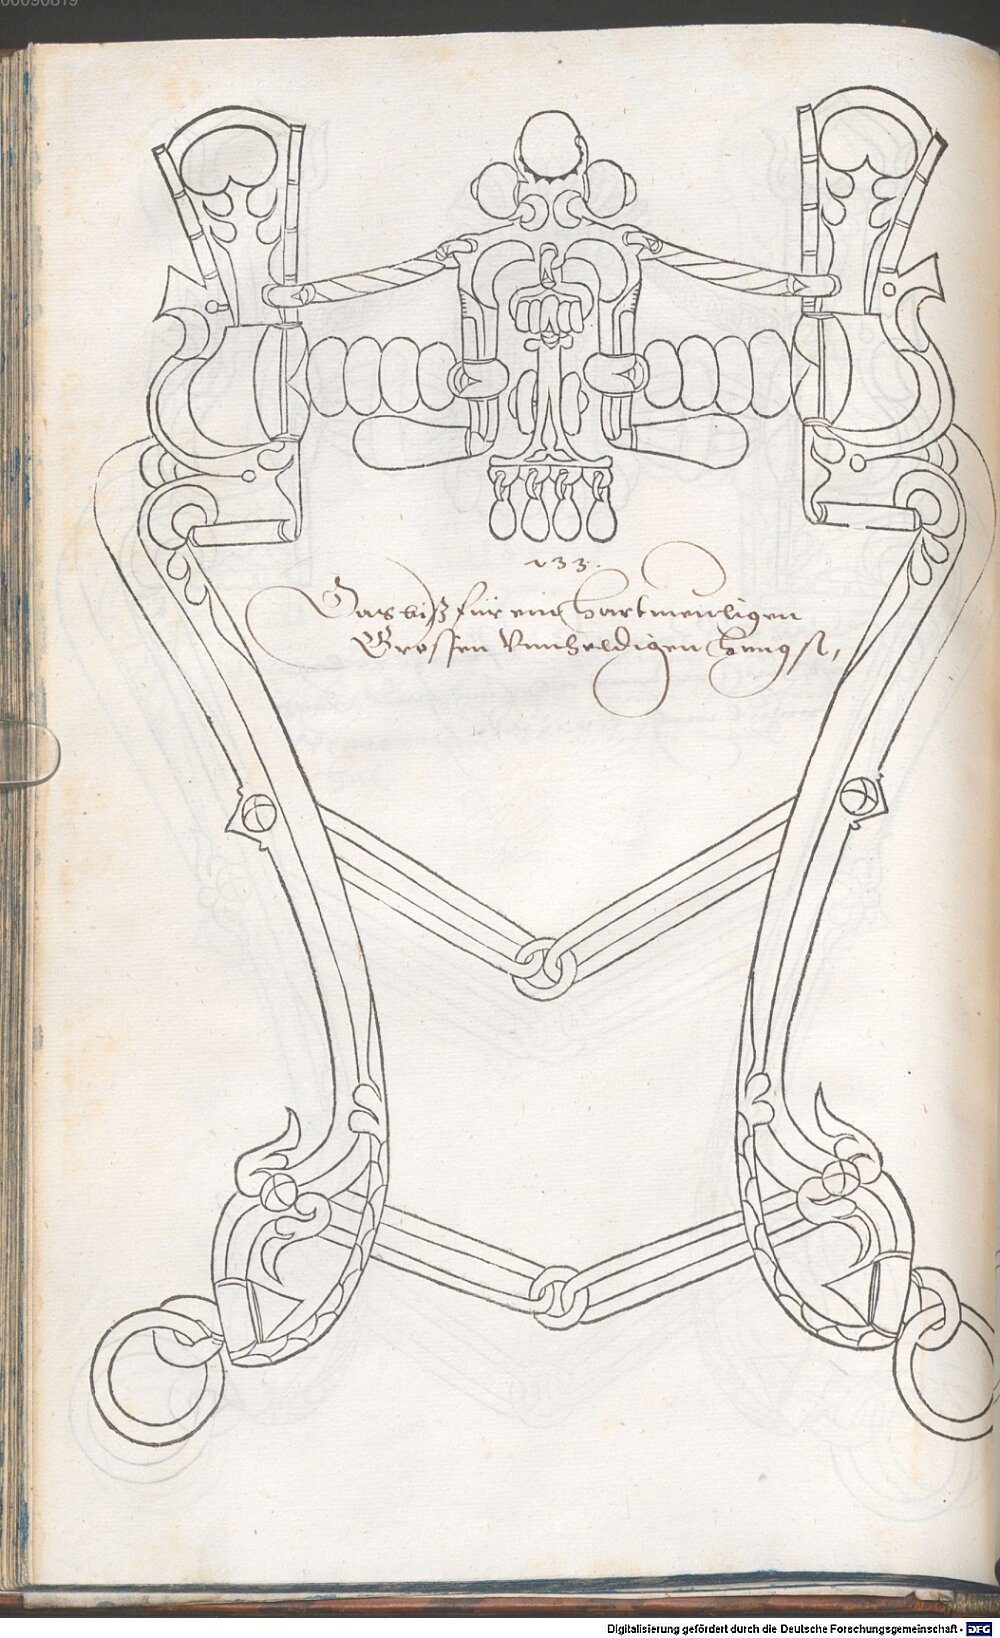 00090819
133.
Das biß für ein hartmeuligen
Grossen Vnuheldigen hengst,
Digitalisierung gefördert durch die Deutsche Forschungsgemeinschaft - DFG